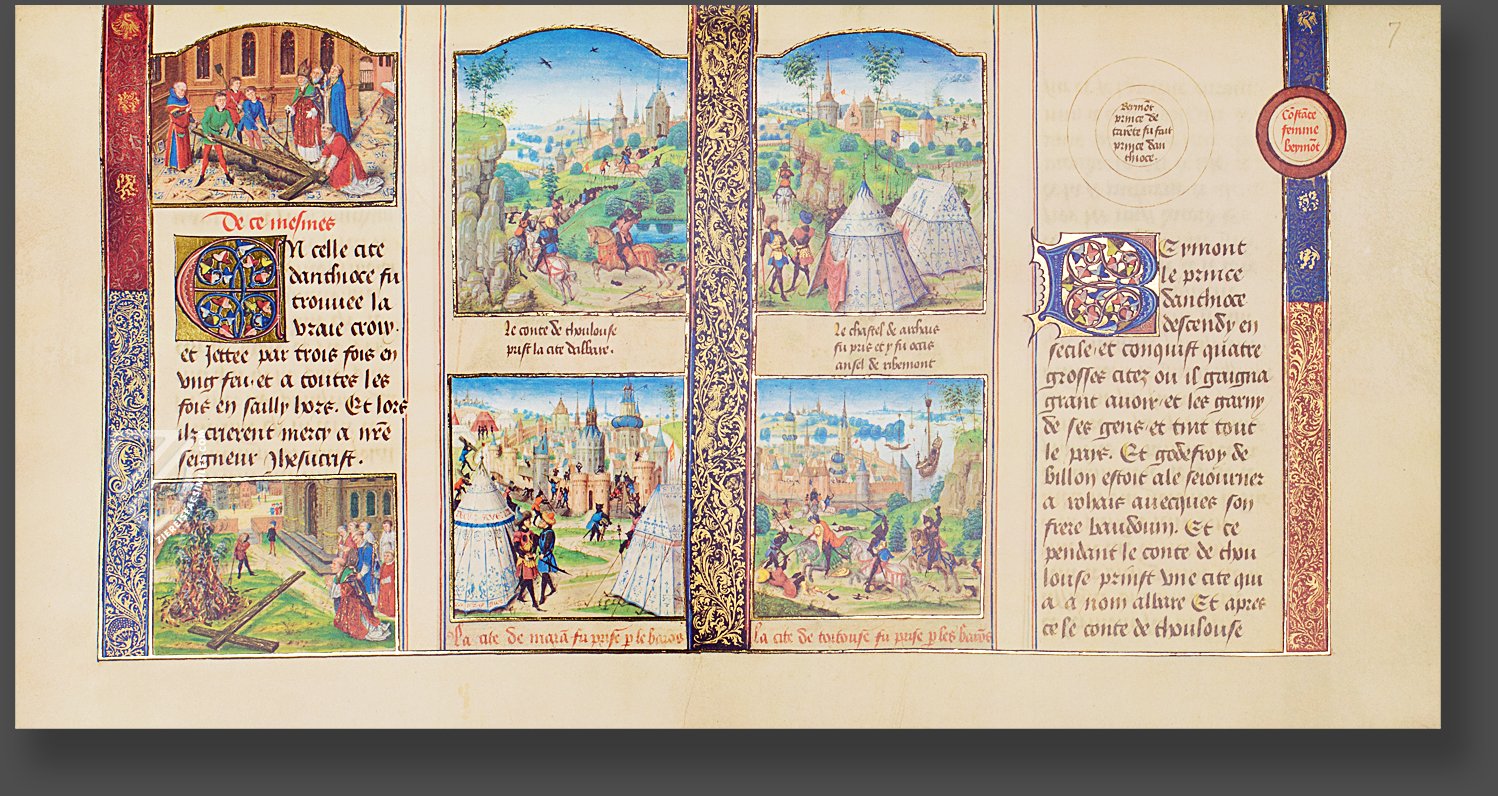 De ce mesmes
En celle cite
danthioce fu
trouuee la
vraie croix.
et Jettee par trois fois en
vng feu et a toutes les
fois en sailly hors. Et lors
ilz crierent mercy a nr̃e
seigneur Jhesucrist.
le conte de thoulouse
prist la cite dalbare.
la cite de maraã fu prise p le barõs
le chastel de archais
fu pris et y fu occis
ansel de ribemont
la cite de tortouse fu prise p les barõs
7
Beymõt
prince de
tarẽte fu fait
prince dan
thioce.
Cõstãce
femme
beymõt
Beymont
le prince
danthioce
descendy en
secile et conquist quatre
grosses citez ou il gaigna
grant auoir et les garny
de ses gens et tint tout
le pays. Et godefroy de
billon estoit ale seiourner
a rohais auecques son
frere bauduin. Et ce
pendant le conte de thou
louse prinst vne cite qui
a a nom albare Et apres
ce le conte de thoulouse